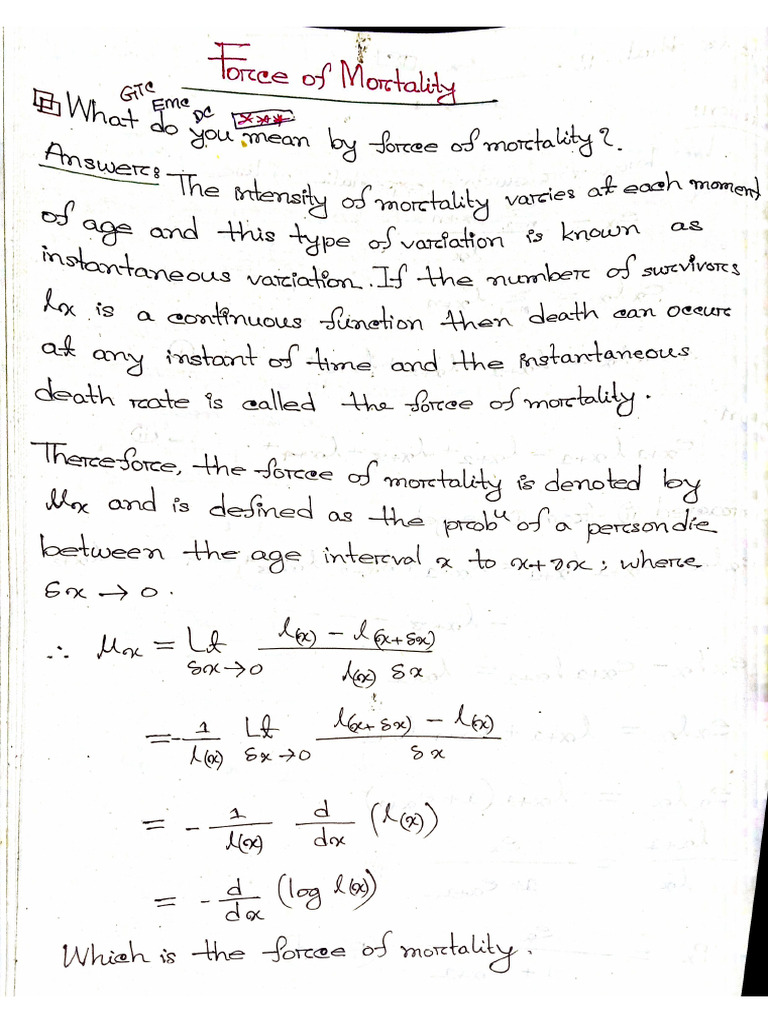 Force of Mortality
GTC EMC DC ***
What do you mean by force of mortality?
Answer: The intensity of mortality varies at each moment
of age and this type of variation is known as
instantaneous variation. If the number of survivors
lx is a continuous function then death can occur
at any instant of time and the instantaneous
death rate is called the force of mortality.
Therefore, the force of mortality is denoted by
μx and is defined as the probᵘ of a person die
between the age interval x to x+δx; where
δx → 0.
∴ μx = Lt δx→0 l(x) − l(x+δx) / l(x) δx
= − 1/l(x) Lt δx→0 l(x+δx) − l(x) / δx
= − 1/l(x) d/dx (l(x))
= − d/dx (log l(x))
Which is the force of mortality.